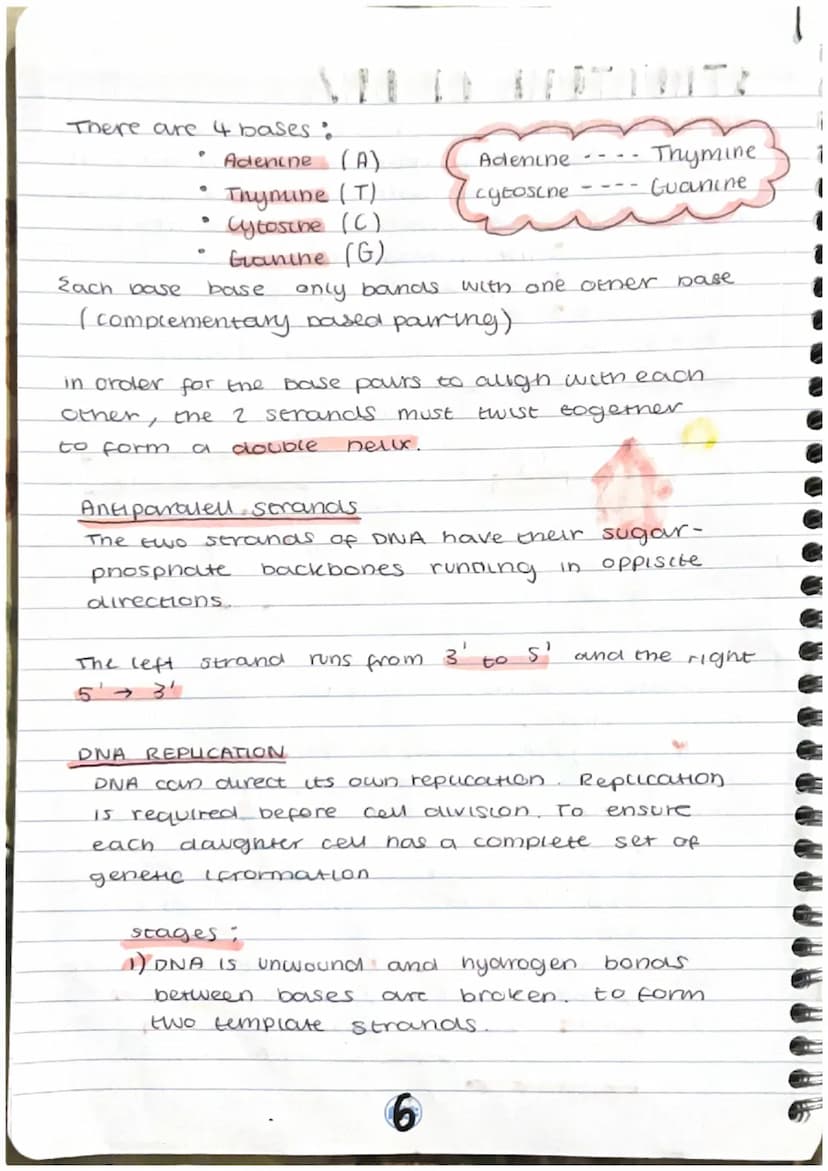 There are 4 bases :
• Adenine (A)
• Thymine (T)
• Cytosine (C)
• Guanine (G)
Adenine ---- Thymine
cytosine ---- Guanine
Each base base only bands with one other base
(complementary based pairing)
in order for the base pairs to align with each
other, the 2 strands must twist together
to form a double helix.
Antiparalell strands
The two strands of DNA have their sugar-
phosphate backbones running in oppisite
directions.
The left strand runs from 3' to 5' and the right
5' → 3'
DNA REPLICATION
DNA can direct its own replication. Replication
is required before cell division. To ensure
each daughter cell has a complete set of
genetic iformation
stages :
1) DNA is unwound and hydrogen bonds
between bases are broken. to form
two template strands.
6